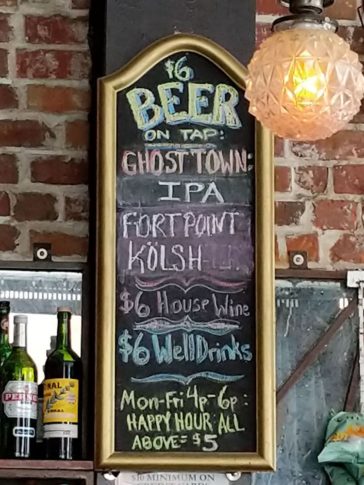 $6
BEER
ON TAP:
GHOST TOWN:
IPA
FORT POINT
KÖLSH
$6 House Wine
$6 Well Drinks
Mon-Fri 4p-6p:
HAPPY HOUR: ALL
ABOVE = $5
$10 MINIMUM ON
PERNO